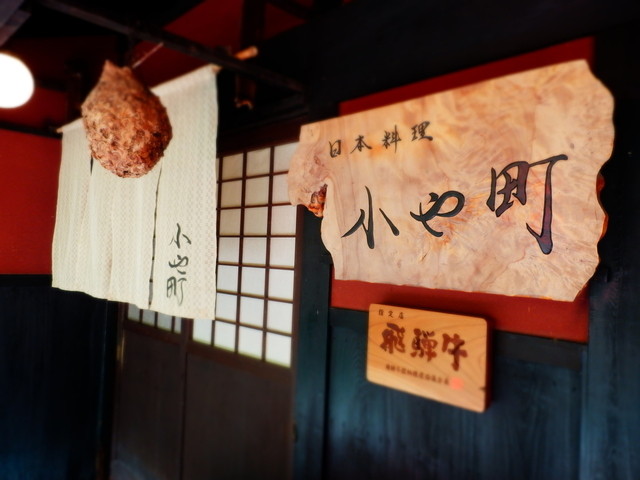 小や町
日本料理
小や町
指定店
飛騨牛